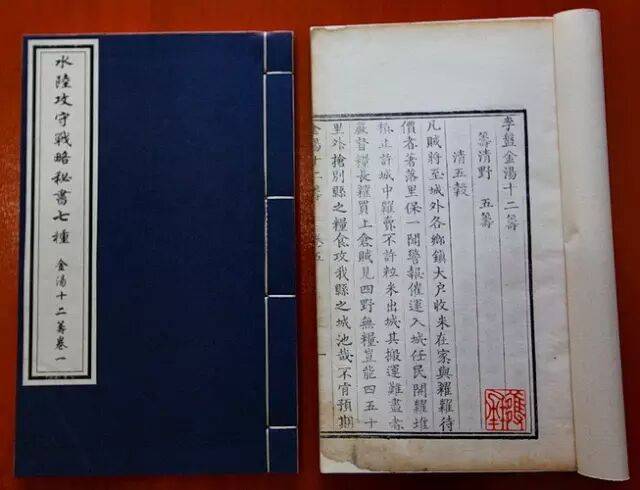 水陸攻守戰略秘書七種
金湯十二籌卷一
李盤金湯十二籌
籌清野 五籌
清五穀
凡賊將至城外各鄉鎮大户收米在家與糴糶待
價者著落里保一聞警報催運入城任民開糶堆
積止許城中糴賣不許粒米出城其搬運難盡者
嚴督糧長糴買上倉賊見四野無糧豈能四五十
里外搶別縣之糧食攻我縣之城池哉不肯預期
金湯十二籌 卷五 一